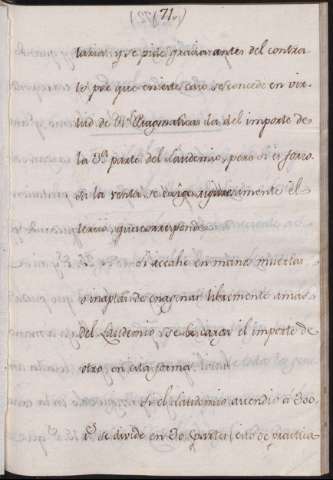 (71.)
taria y se pide gracia antes del contra-
to pr que en este caso se concede en vir-
tud de Rl Pragmatica la del importe de
la parte del Laudemio, pero si es forzo-
sa la venta, se exige riguro amente el
tercio, qe. corresponde
Si recahe en manos muertas
de enagenar libremente amas
del Laudemio, se ha exigir el importe de
otro, en esta forma.
Si el laudemio asendio à 300
rs. se divide en 30. partes (esto es practica